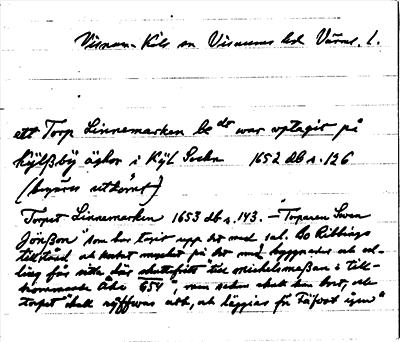 Visnum-Kils sn Visnums hd Värml. l.
ett Torp Linnemarken be:dr war optagit på
Kylßby ägher i Kyl Sochn 1652 db s. 126
(torpares utkörnt)
Torpet Linnemarken 1653 db s. 143. – "Torparen Swen
Jönßon" som har tagit upp det med sal. Bo Ribbings
tillstånd och kostat mycket på det med byggnader och od-
ling får sitta där skattefritt "till michelsmeßan i till-
kommande Åhr 654", men sedan skall han bort, och
torpet "skall röffwas utb, och läggias för Fäfoot igen"